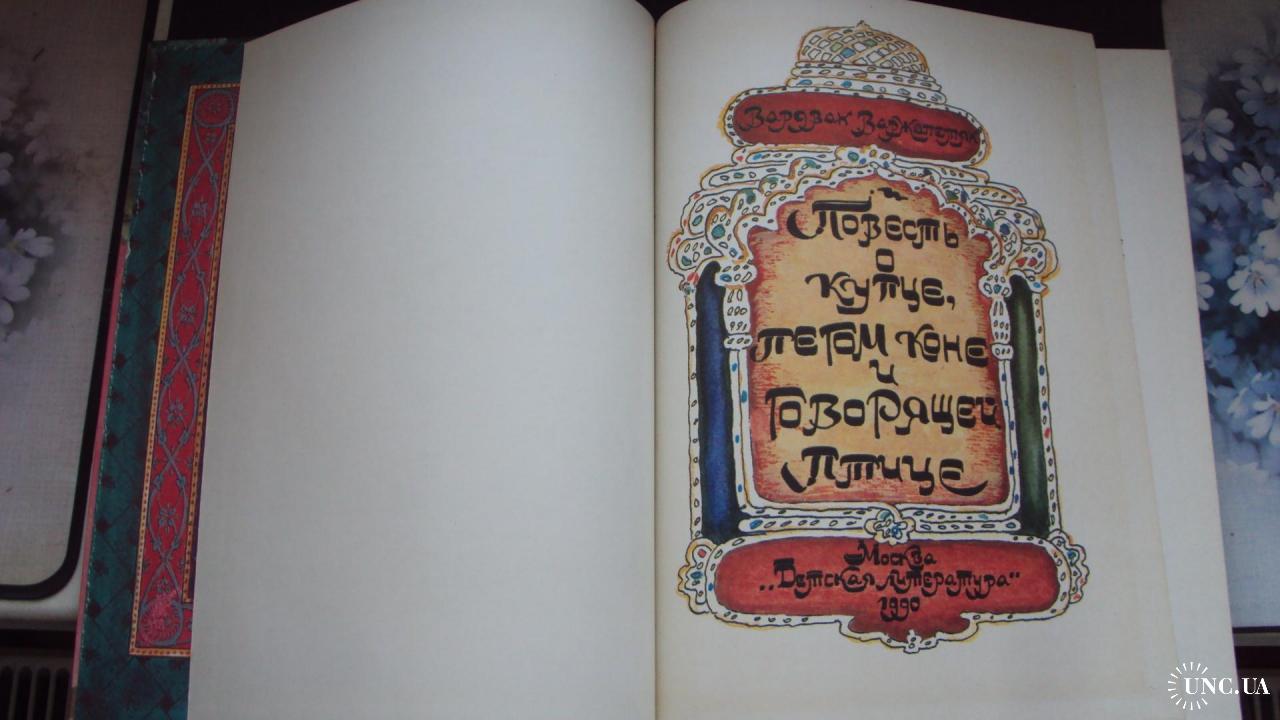 Вардван Варжапетян
Повесть
о
купце,
пегом коне
и
говорящей
птице
Москва
„Детская литература“
1990
UNC.UA